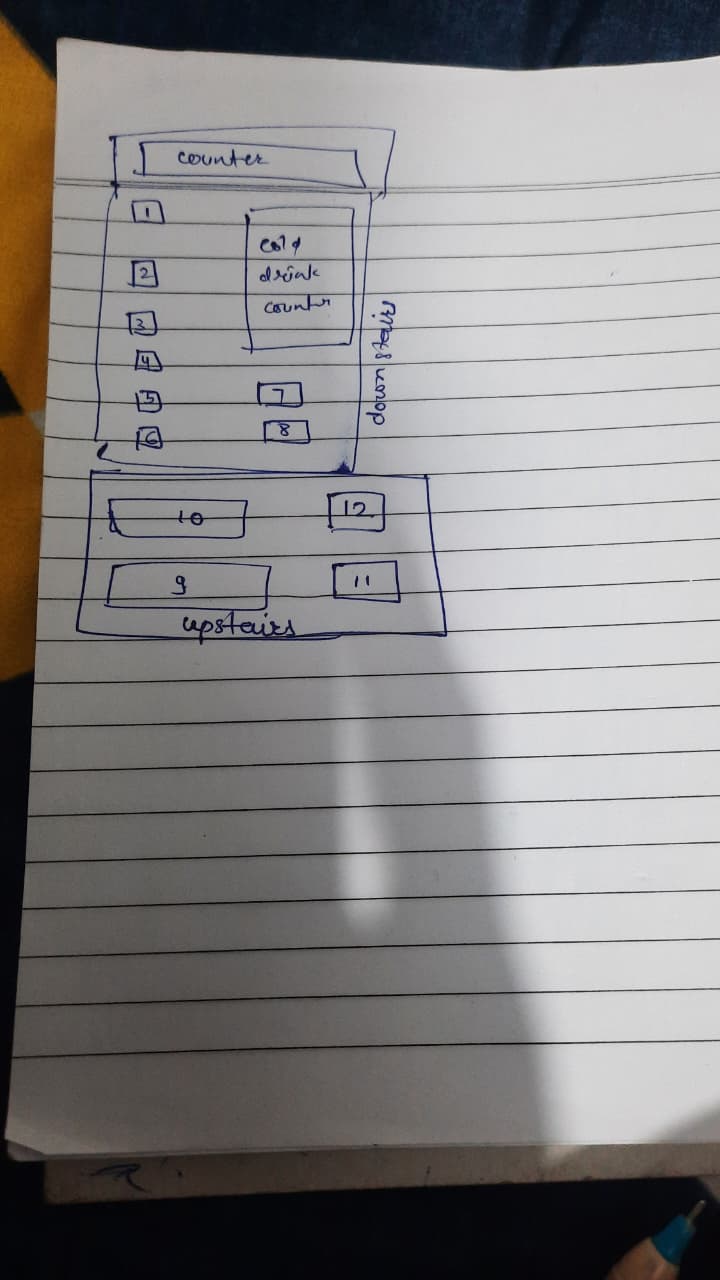 counter
1
cold
drink
counter
2
3
4
5
7
6
8
down stairs
10
12
9
11
upstairs